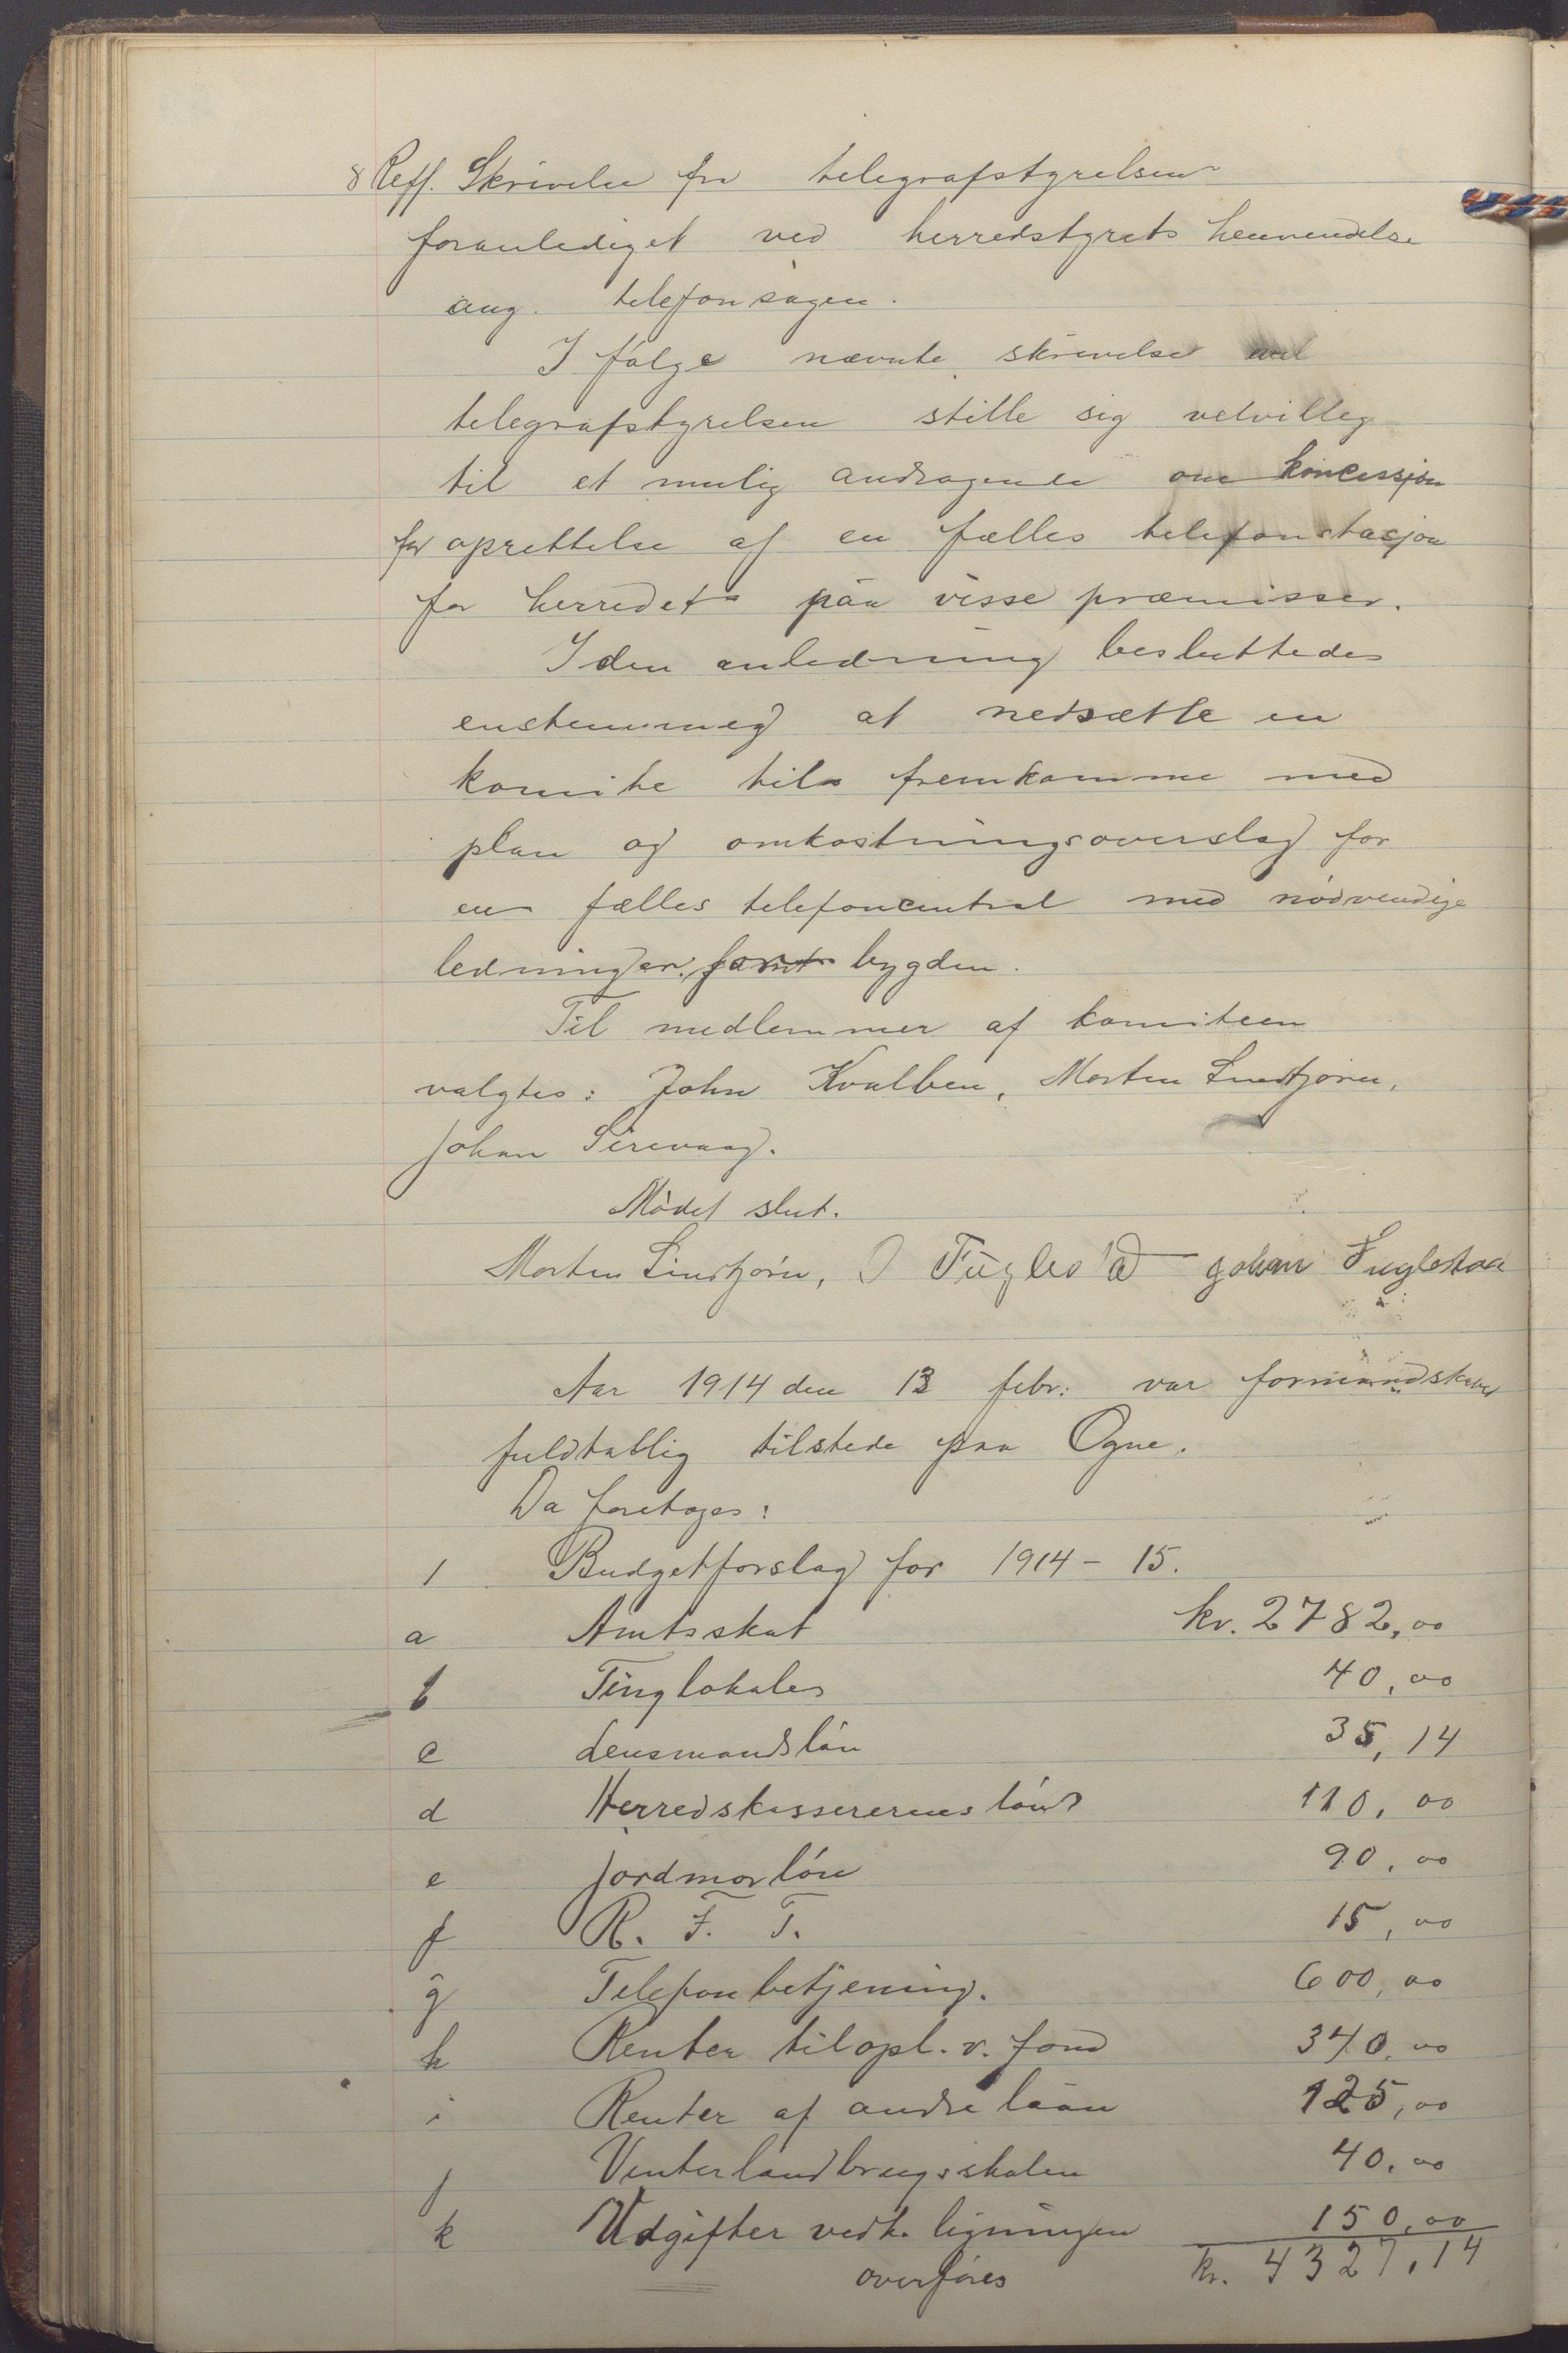 8 Reff. Skrivelse fra telegrafstyrelsen
foranlediget ved herredstyrets henvendelse
ang. telefonsagen.
I følge nævnte skrivelse vil
telegrafstyrelsen stille sig velvillig
til et mulig andragende om koncessjon
for oprettelse af en fælles telefonstasjon
for herredet paa visse præmisser.
I den anledning besluttedes
enstemmig at nedsætte en
komite til a fremkomme med
plan og omkostningsoverslag for
en fælles telefoncentral med nødvendige
ledninger bygden.
Til medlemmer af komiteen
valgtes: John Kvalben, Morten Lindtjørn,
Johan Sirevaag.
Mødet slut.
Morten Lindtjørn, O Fuglestad Johan Fuglestad
Aar 1914 den 13 febr: var formandskabet
fuldtallig tilstede paa Ogne.
Da foretoges:
1 Budgetforslag for 1914 - 15.
a Amtsskat kr. 2782,00
b Tinglokaler 40,00
c Lensmandsløn 35,14
d Herredskassererens løn 110,00
e Jordmorløn 90,00
f R. F. T. 15,00
g Telefonbetjening. 600,00
h Renter til opl. v. fond 340,00
i Renter af andre laan 125,00
j Vinterlandbrugsskolen 40,00
k Udgifter vedk. ligningen 150,00
overføres kr. 4327,14